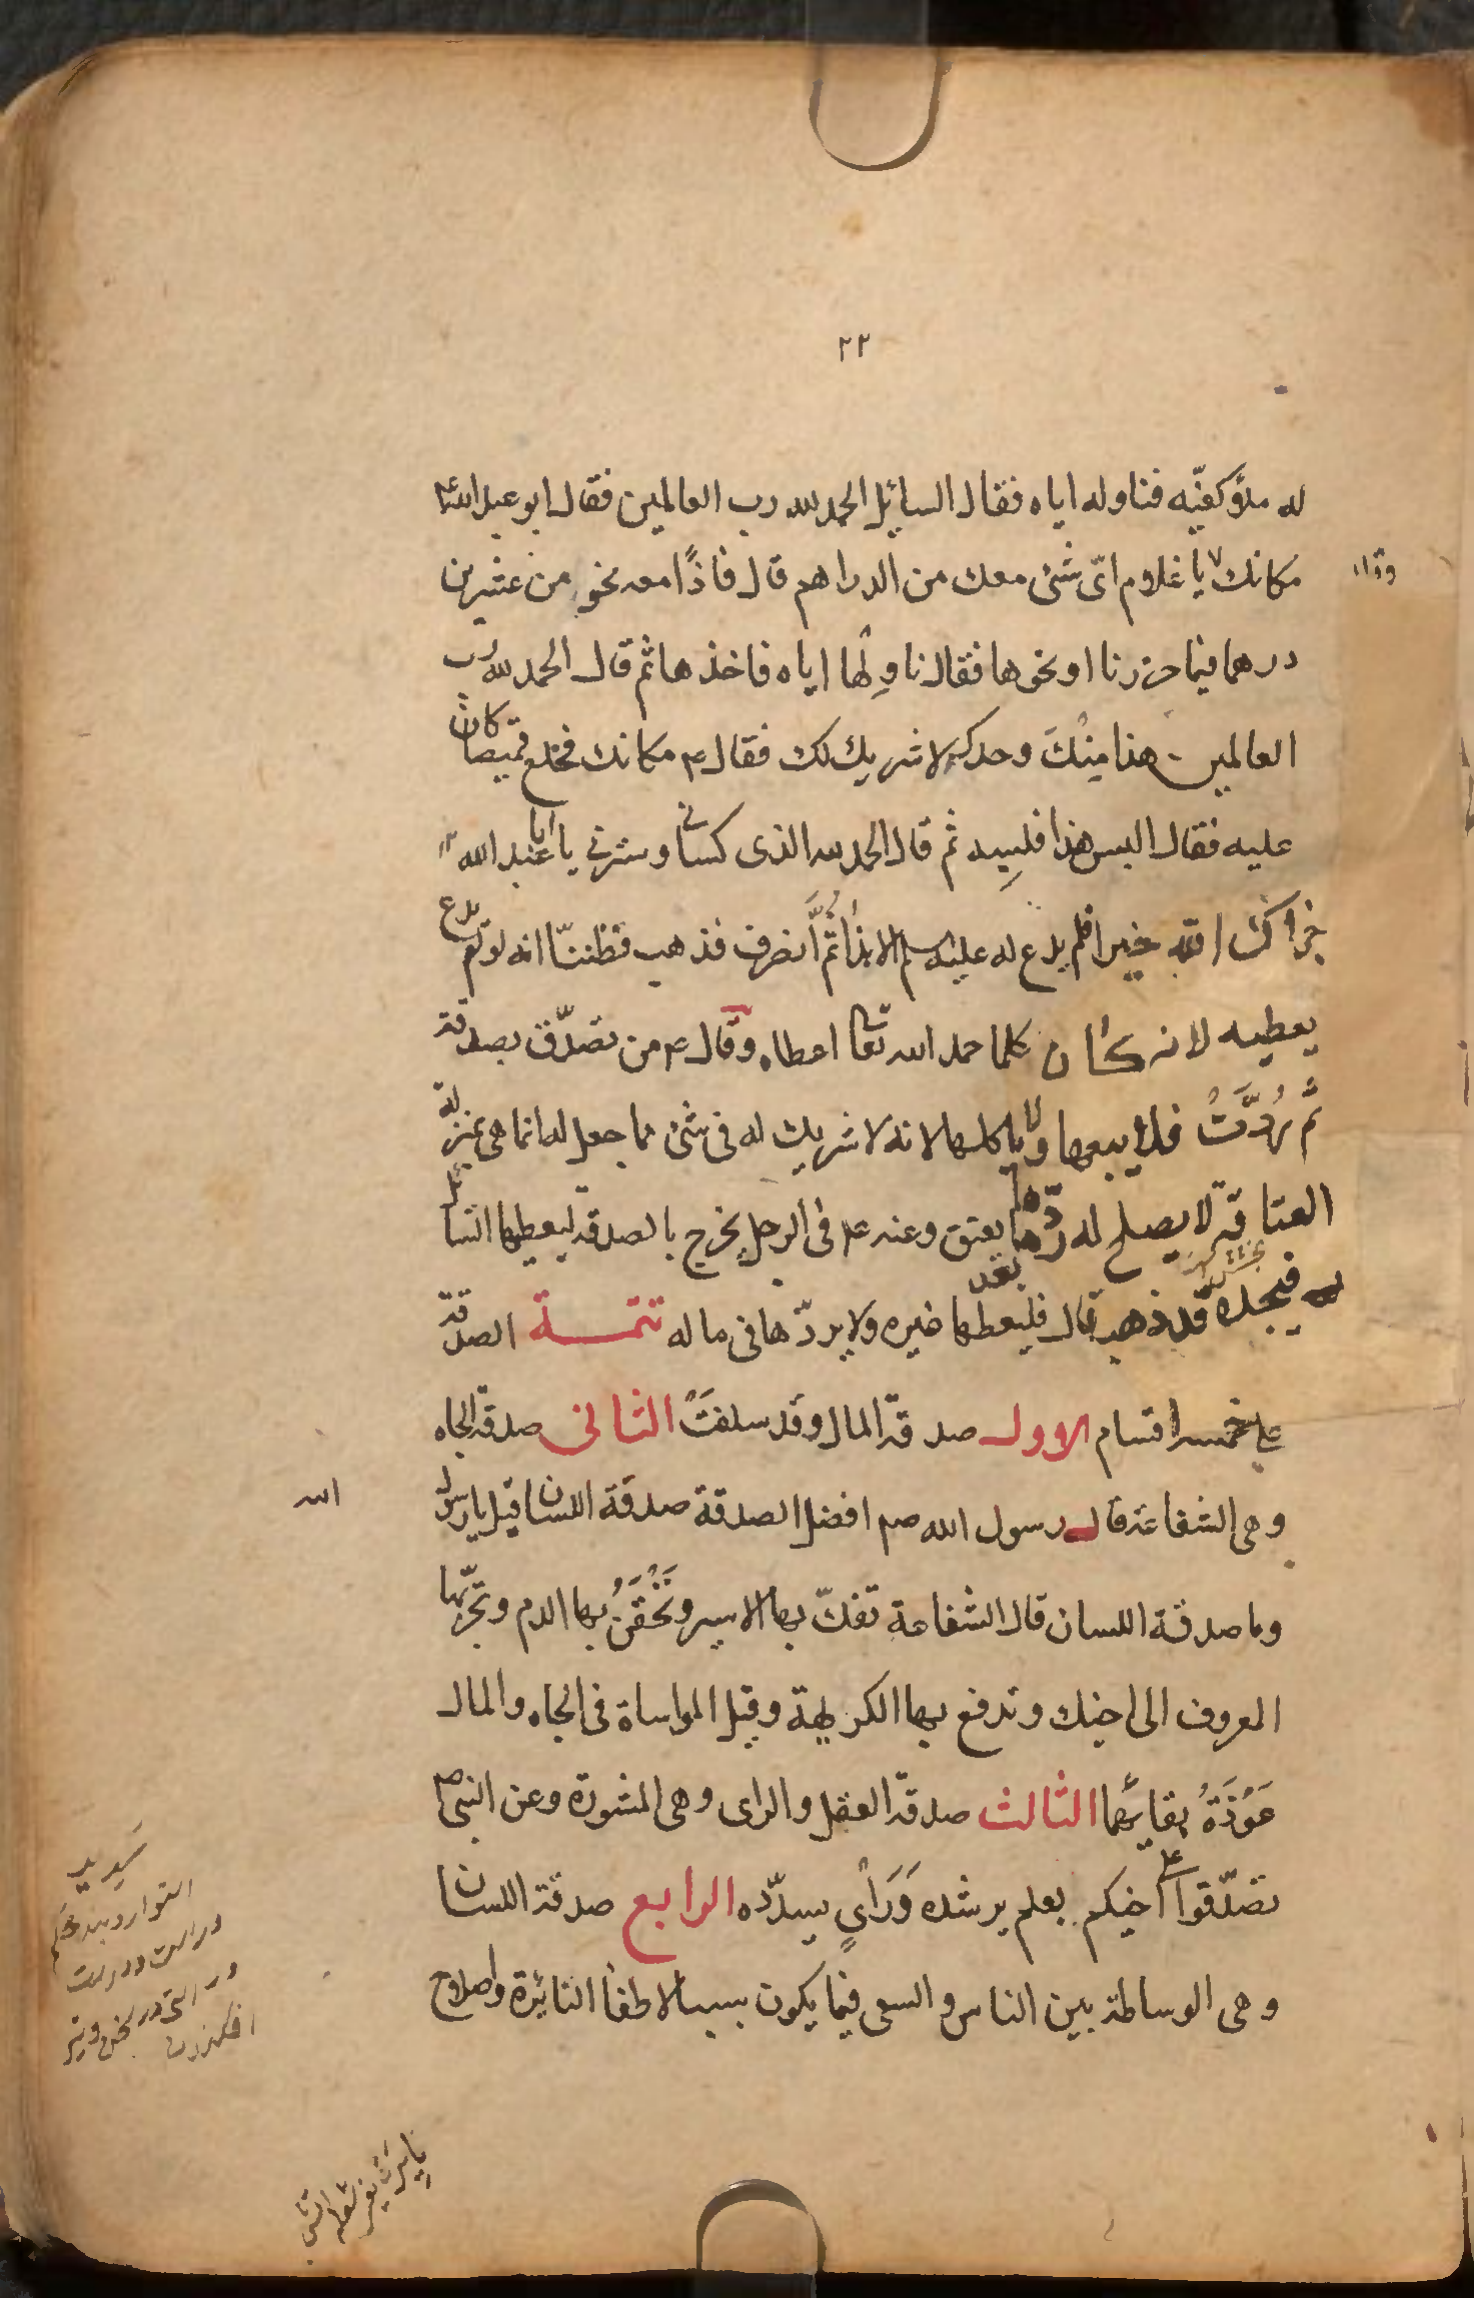 ٢٢
له ملؤ كفيّه فناوله اياه فقال السايل الحمد لله رب العالمين فقال ابو عبد الله ع
مكانك يا غلام اىّ شئ معك من الدراهم قال فاذًا معه نحو من عشرين
درهما فيما حزرنا او نحوها فقال ناوِلها اياه فاخذها ثم قال الحمد لله رب
العالمين هذا مِنْكَ وحدك لا شريك لك فقال ع مكانك فخلع قميصا كان
عليه فقال البس هذا فلبِسه ثم قال الحمد لله الذى كسانى وسترنى يا ابا عبد الله
جزاك الله خيرا فلم يدع له عليه سلم الا بذا ثمّ انصرف فذهب فظننّا انه لو لم يدع
يعطيه لانه كان كلما حمد الله تعا اعطاه وقال ع من تصدّق بصدقة
ثم رُدَّتْ فلا يبعها ولا ياكلها لانه لا شريك له فى شئ مما جعل له انما هى بمنزلة
العتاقة لا يصلح له ردّها بعد ما يعتق وعنه ع فى الرجل يخرج بالصدقة ليعطيها السائل
فيجده قد ذهب قال فليعطها غيره ولا يردّها فى ماله تتمـــة الصدقة
على خمسة اقسام الاول صدقة المال وقد سلفتْ الثانى صدقة الجاه
وهى الشفاعة قال رسول الله صم افضل الصدقة صدقة اللسان قيل يا رسول
الله
وما صدقة اللسان قال الشفاعة تفكّ بها الاسير وتَحْقَنُ بها الدم وتجرّ بها
المعروف الى اخيك وتدفع بها الكريهة وقيل المواساة فى الجاه والمال
عَوْذَةُ بقائهما الثالث صدقة العقل والراى وهى المشورة وعن النبى ص
تصدّقوا على اخيكم بعلم يرشده وَرَأىٍ يسدّده الرابع صدقة اللسان
وهى الوساطة بين الناس والسعى فيما يكون سببا لاطفا النائرة واصلاح